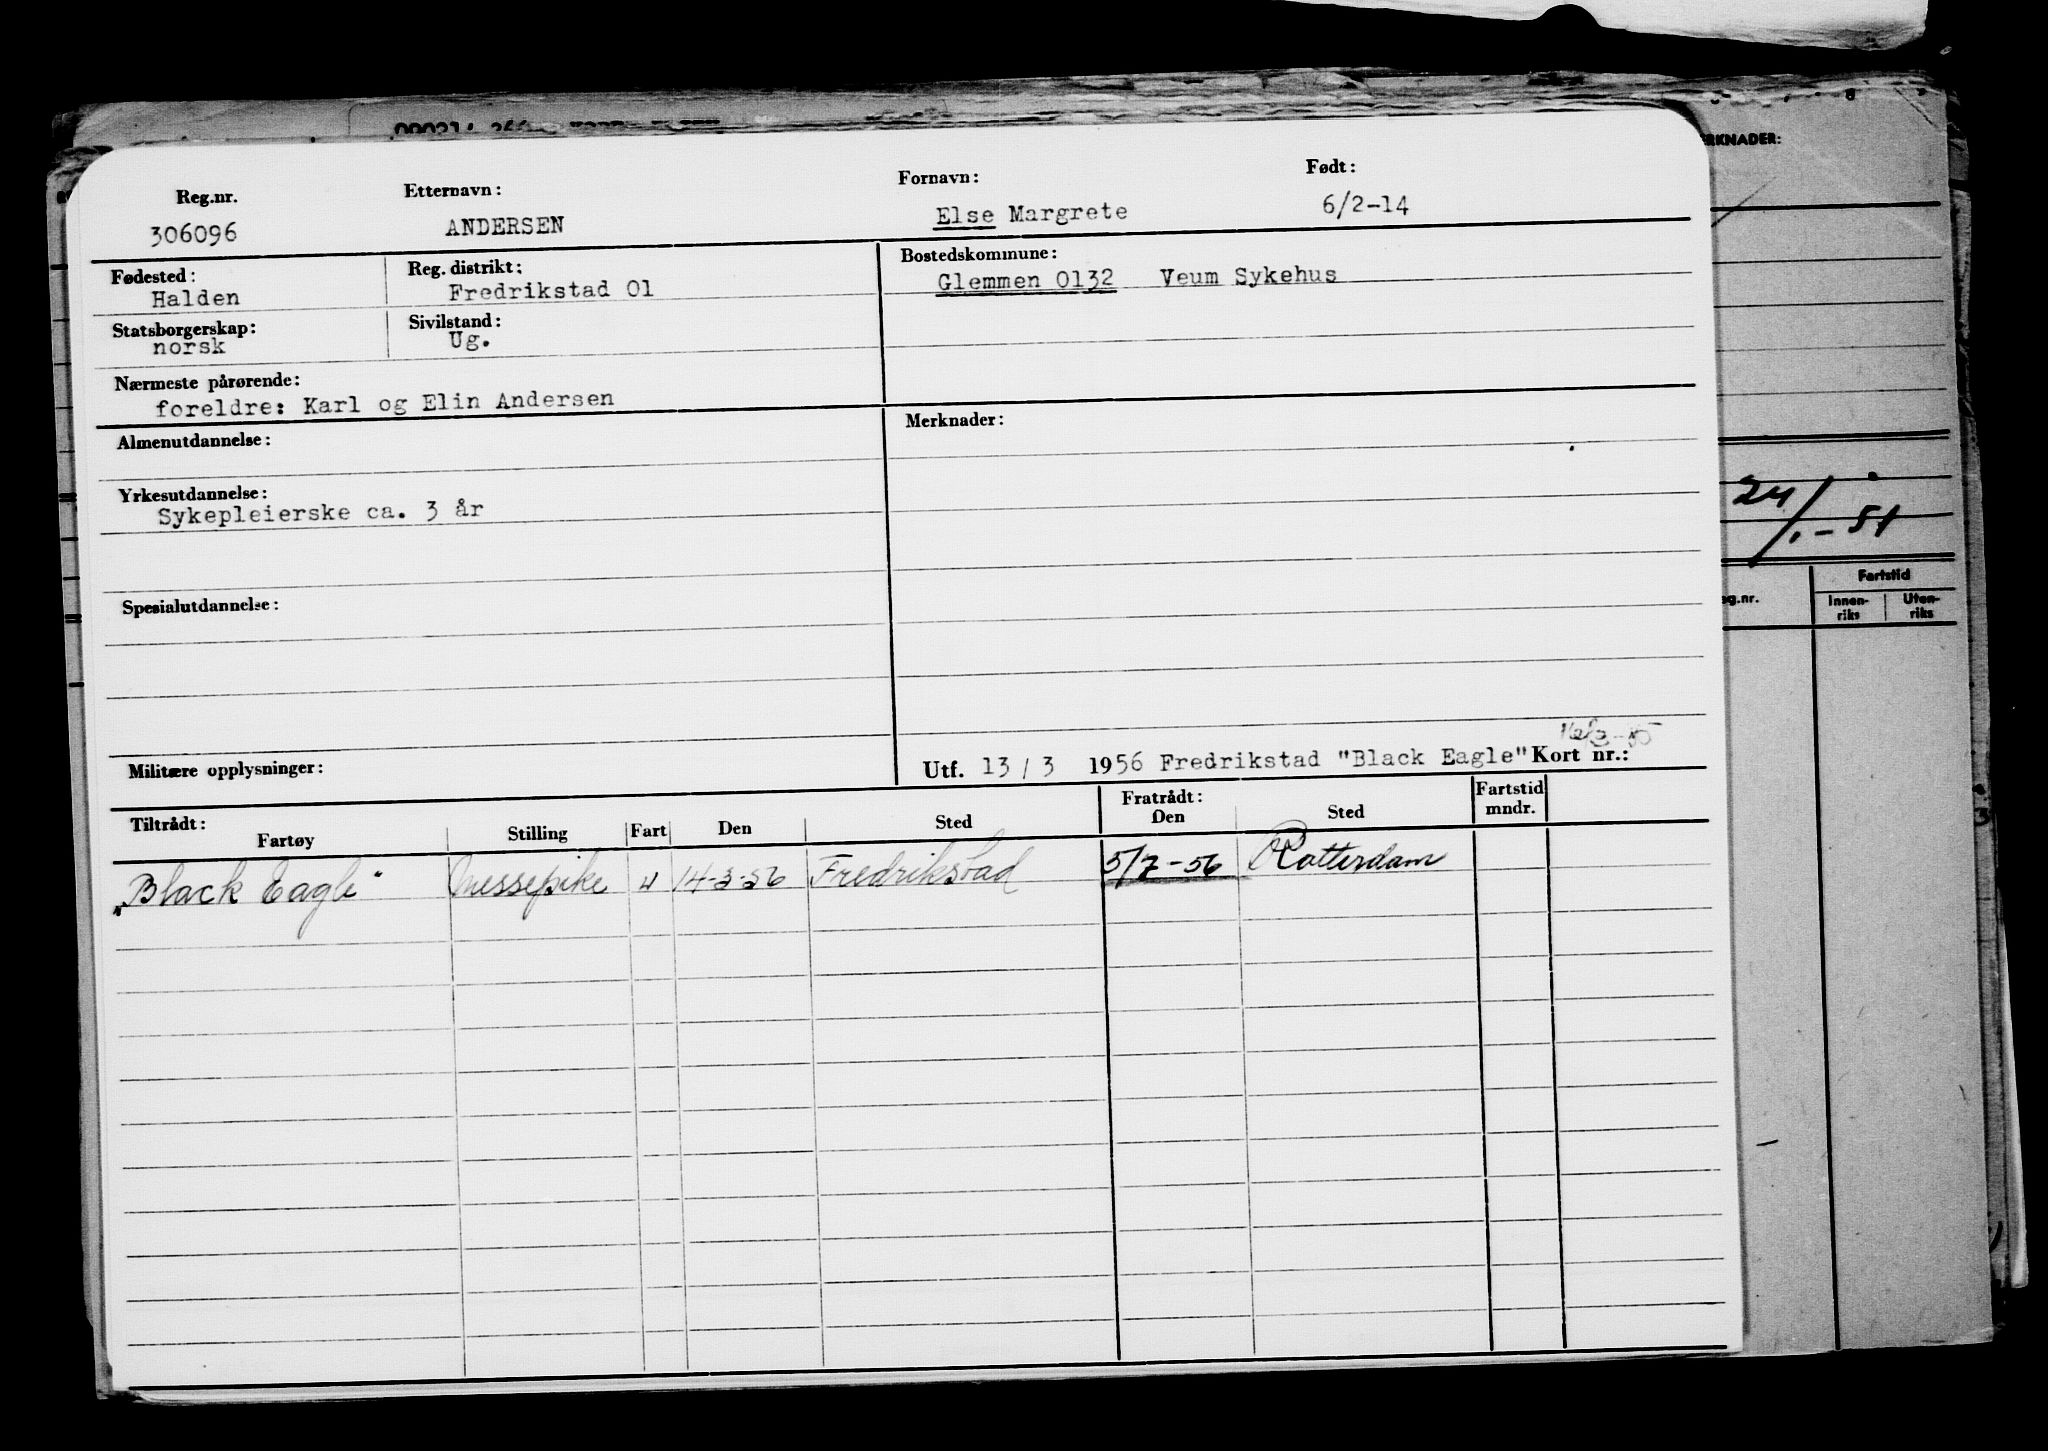 ERKNADER:
Reg.nr. Etternavn: Fornavn: Født:
306096 ANDERSEN Else Margrete 6/2-14
Fødested: Reg. distrikt: Bostedskommune:
Halden Fredrikstad 01 Glemmen 0132 Veum Sykehus
Statsborgerskap: Sivilstand:
norsk Ug.
Nærmeste pårørende:
foreldre: Karl og Elin Andersen
Almenutdannelse: Merknader:
Yrkesutdannelse:
Sykepleierske ca. 3 år
24/1.-51
Spesialutdannelse:
eg.nr. Fartstid
Innen-riks Uten-riks
Militære opplysninger: Utf. 13/3 1956 Fredrikstad "Black Eagle" Kort nr.:
Tiltrådt: Fratrådt: Fartstid
Fartøy Stilling Fart Den Sted Den Sted mndr.
„Black Eagle" Messepike U 14-3-56 Fredrikstad 5/7-56 Rotterdam